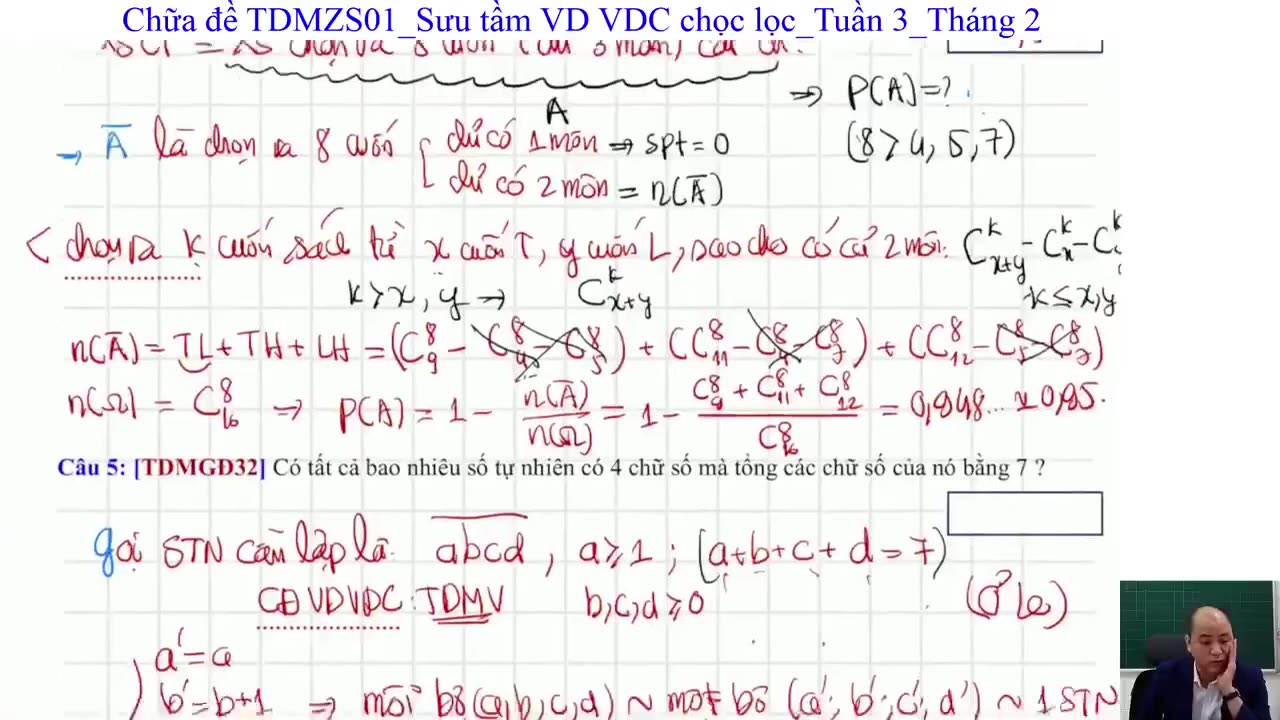 Chữa đề TDMZS01_Sưu tầm VD VDC chọc lọc_Tuần 3_Tháng 2
A
⇒ P(A)=?
→ A̅ là chọn ra 8 cuốn
chỉ có 1 môn ⇒ spt = 0
(8 > 4, 5, 7)
chỉ có 2 môn = n(A̅)
< chọn ra k cuốn sách từ x cuốn T, y cuốn L, sao cho có cả 2 môn: C^k_{x+y} - C^k_x - C^k
k > x, y → C^k_{x+y}
k ≤ x, y
n(A̅) = TL + TH + LH = (C^8_9 - C^8_4 - C^8_5) + (C^8_11 - C^8_4 - C^8_7) + (C^8_12 - C^8_5 - C^8_7)
n(Ω) = C^8_16 ⇒ P(A) = 1 - n(A̅)/n(Ω) = 1 - (C^8_9 + C^8_11 + C^8_12)/C^8_16 = 0,948... ≈ 0,95.
Câu 5: [TDMGD32] Có tất cả bao nhiêu số tự nhiên có 4 chữ số mà tổng các chữ số của nó bằng 7 ?
gọi STN cần lập là: abcd, a ≥ 1; (a+b+c+d = 7)
CĐ VDVDC: TDMV b, c, d ≥ 0
a' = a
b' = b+1 ⇒ mỗi bộ (a,b,c,d) ~ một bộ (a', b', c', d') ~ 1 STN